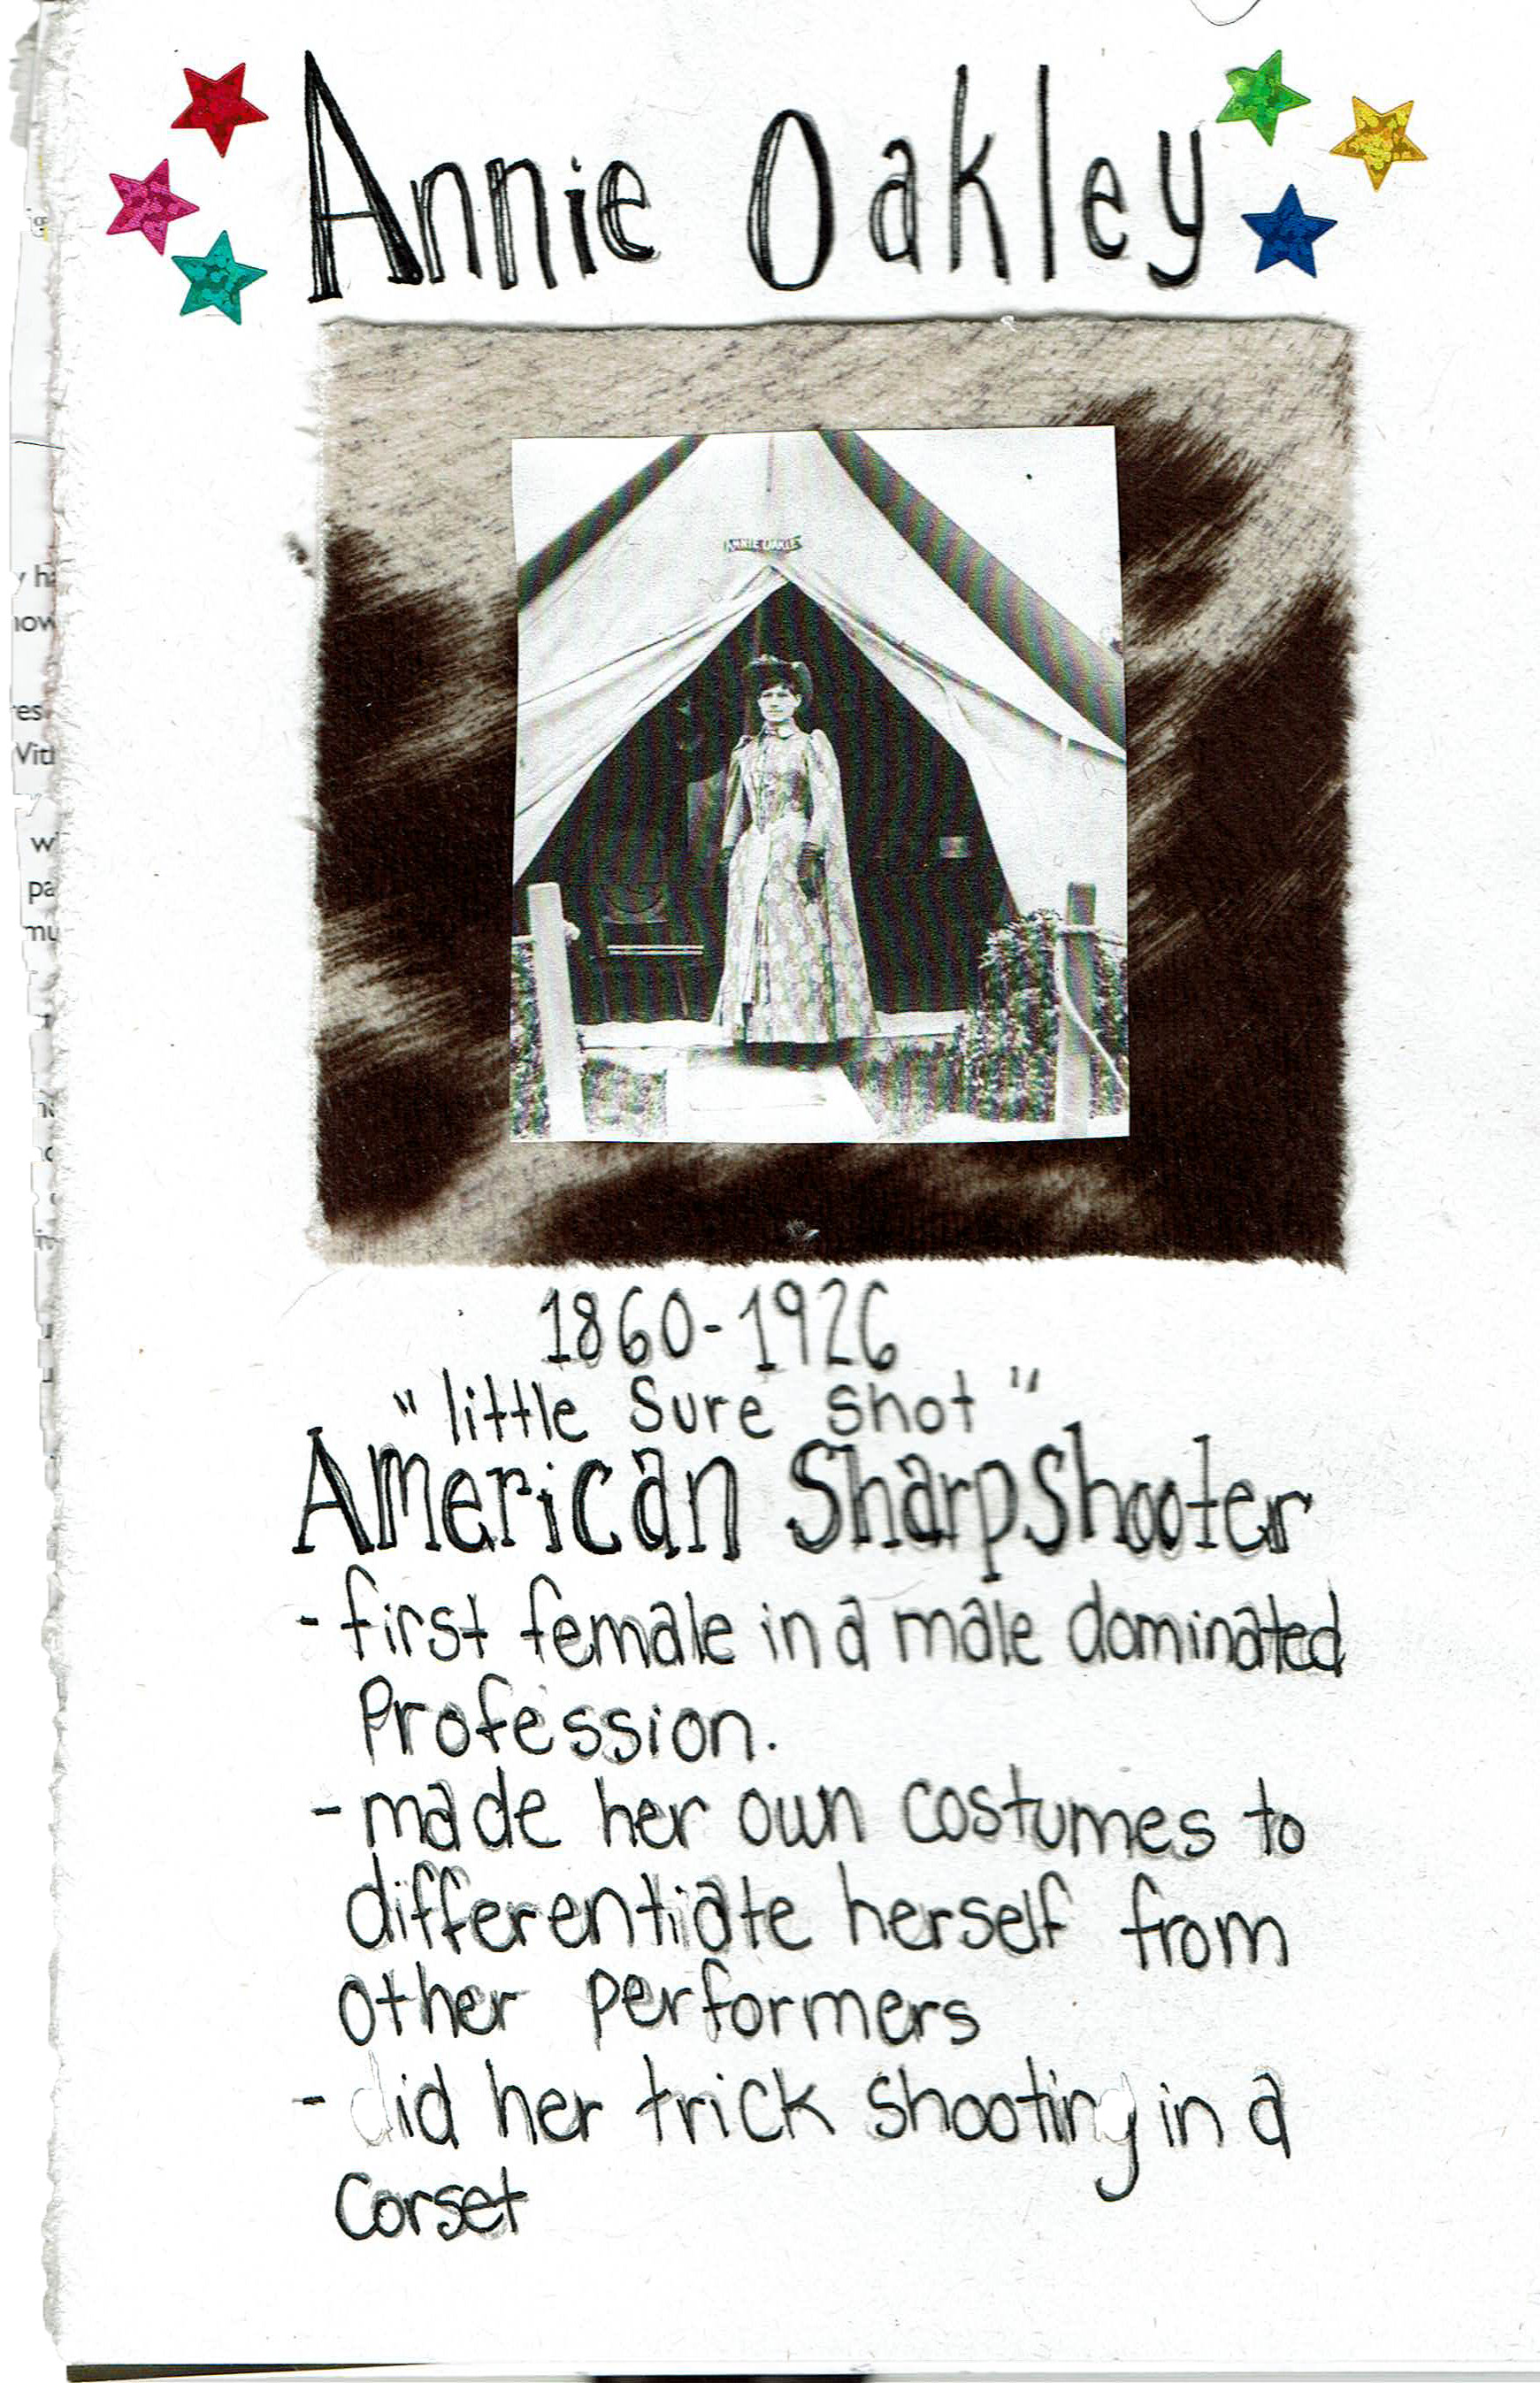 Annie Oakley
ANNIE OAKLEY
1860-1926
"little Sure shot"
American Sharpshooter
- first female in a male dominated
Profession.
- made her own costumes to
differentiate herself from
other performers
- did her trick shooting in a
Corset